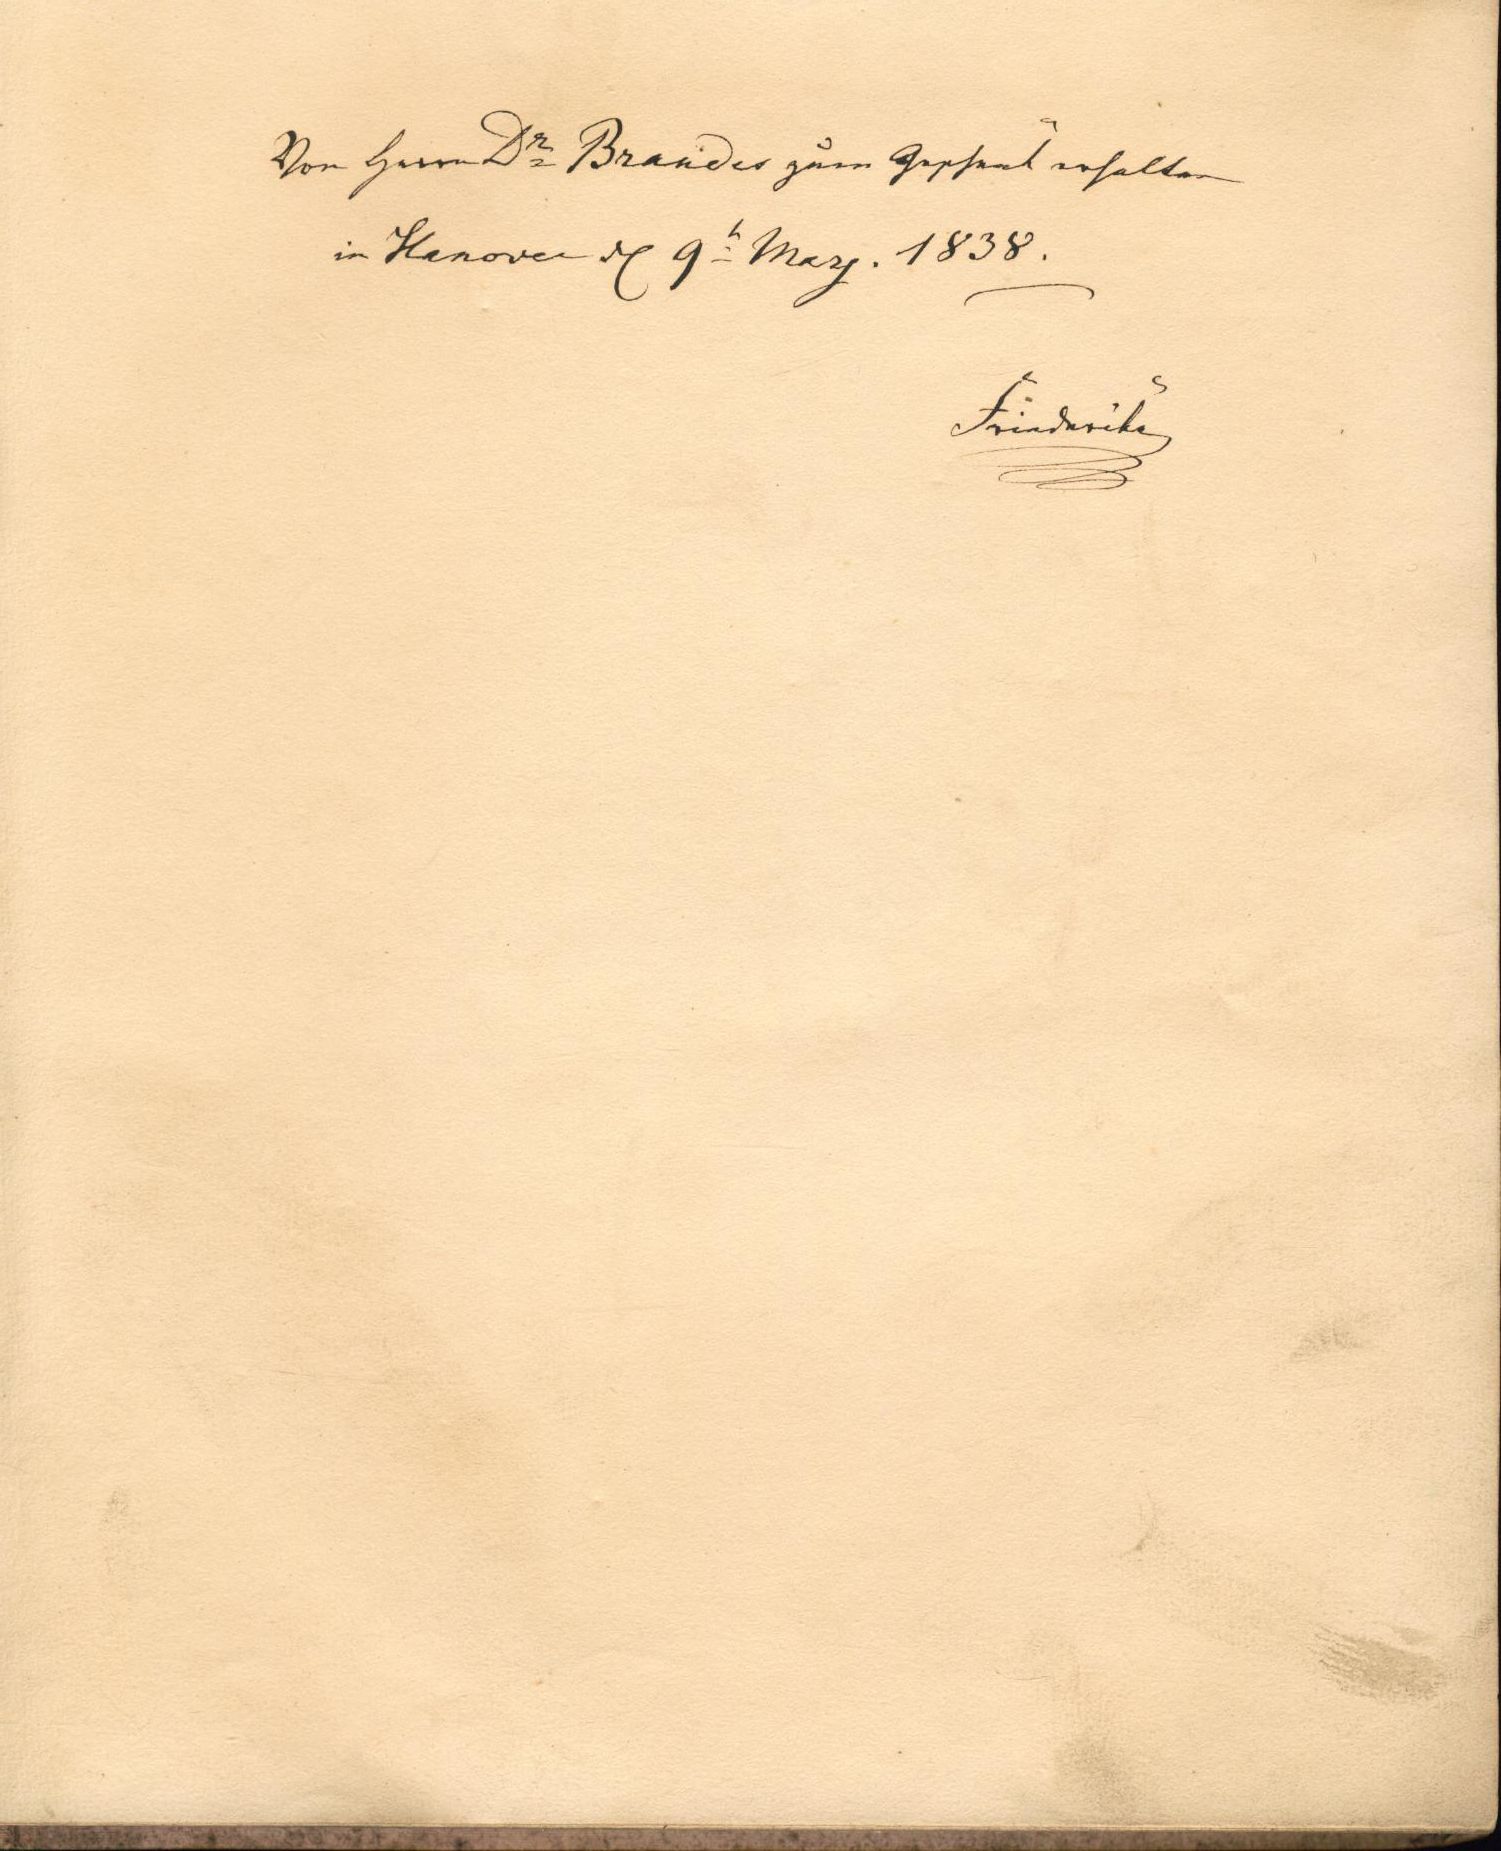 Von Herrn Dr Brandes zum Geschenk erhalten
in Hanover d 9t März. 1838.
Friederike